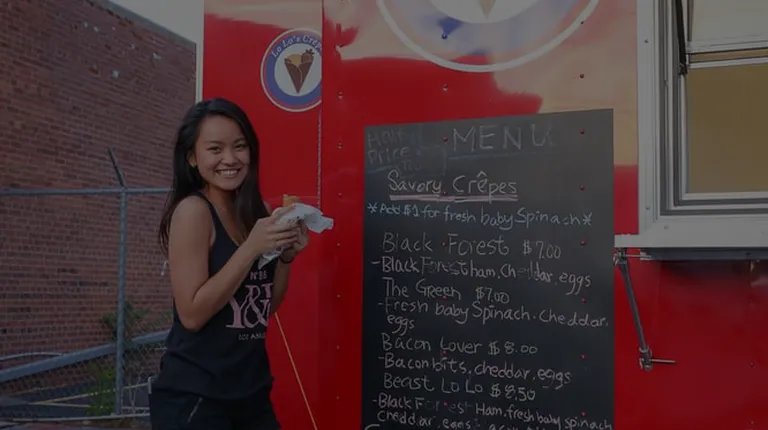 Lo Lo's Crêp
Half
Price
MENU
Savory Crêpes
*Add $1 for fresh baby Spinach*
Black Forest $7.00
-Black Forest ham, cheddar, eggs
The Green $7.00
-Fresh baby Spinach, cheddar,
eggs
Bacon Lover $8.00
-Bacon bits, cheddar, eggs
Beast Lo Lo $8.50
-Black Forest Ham, fresh baby spinach
cheddar, eggs
Nº8
Y&
LOS ANGEL